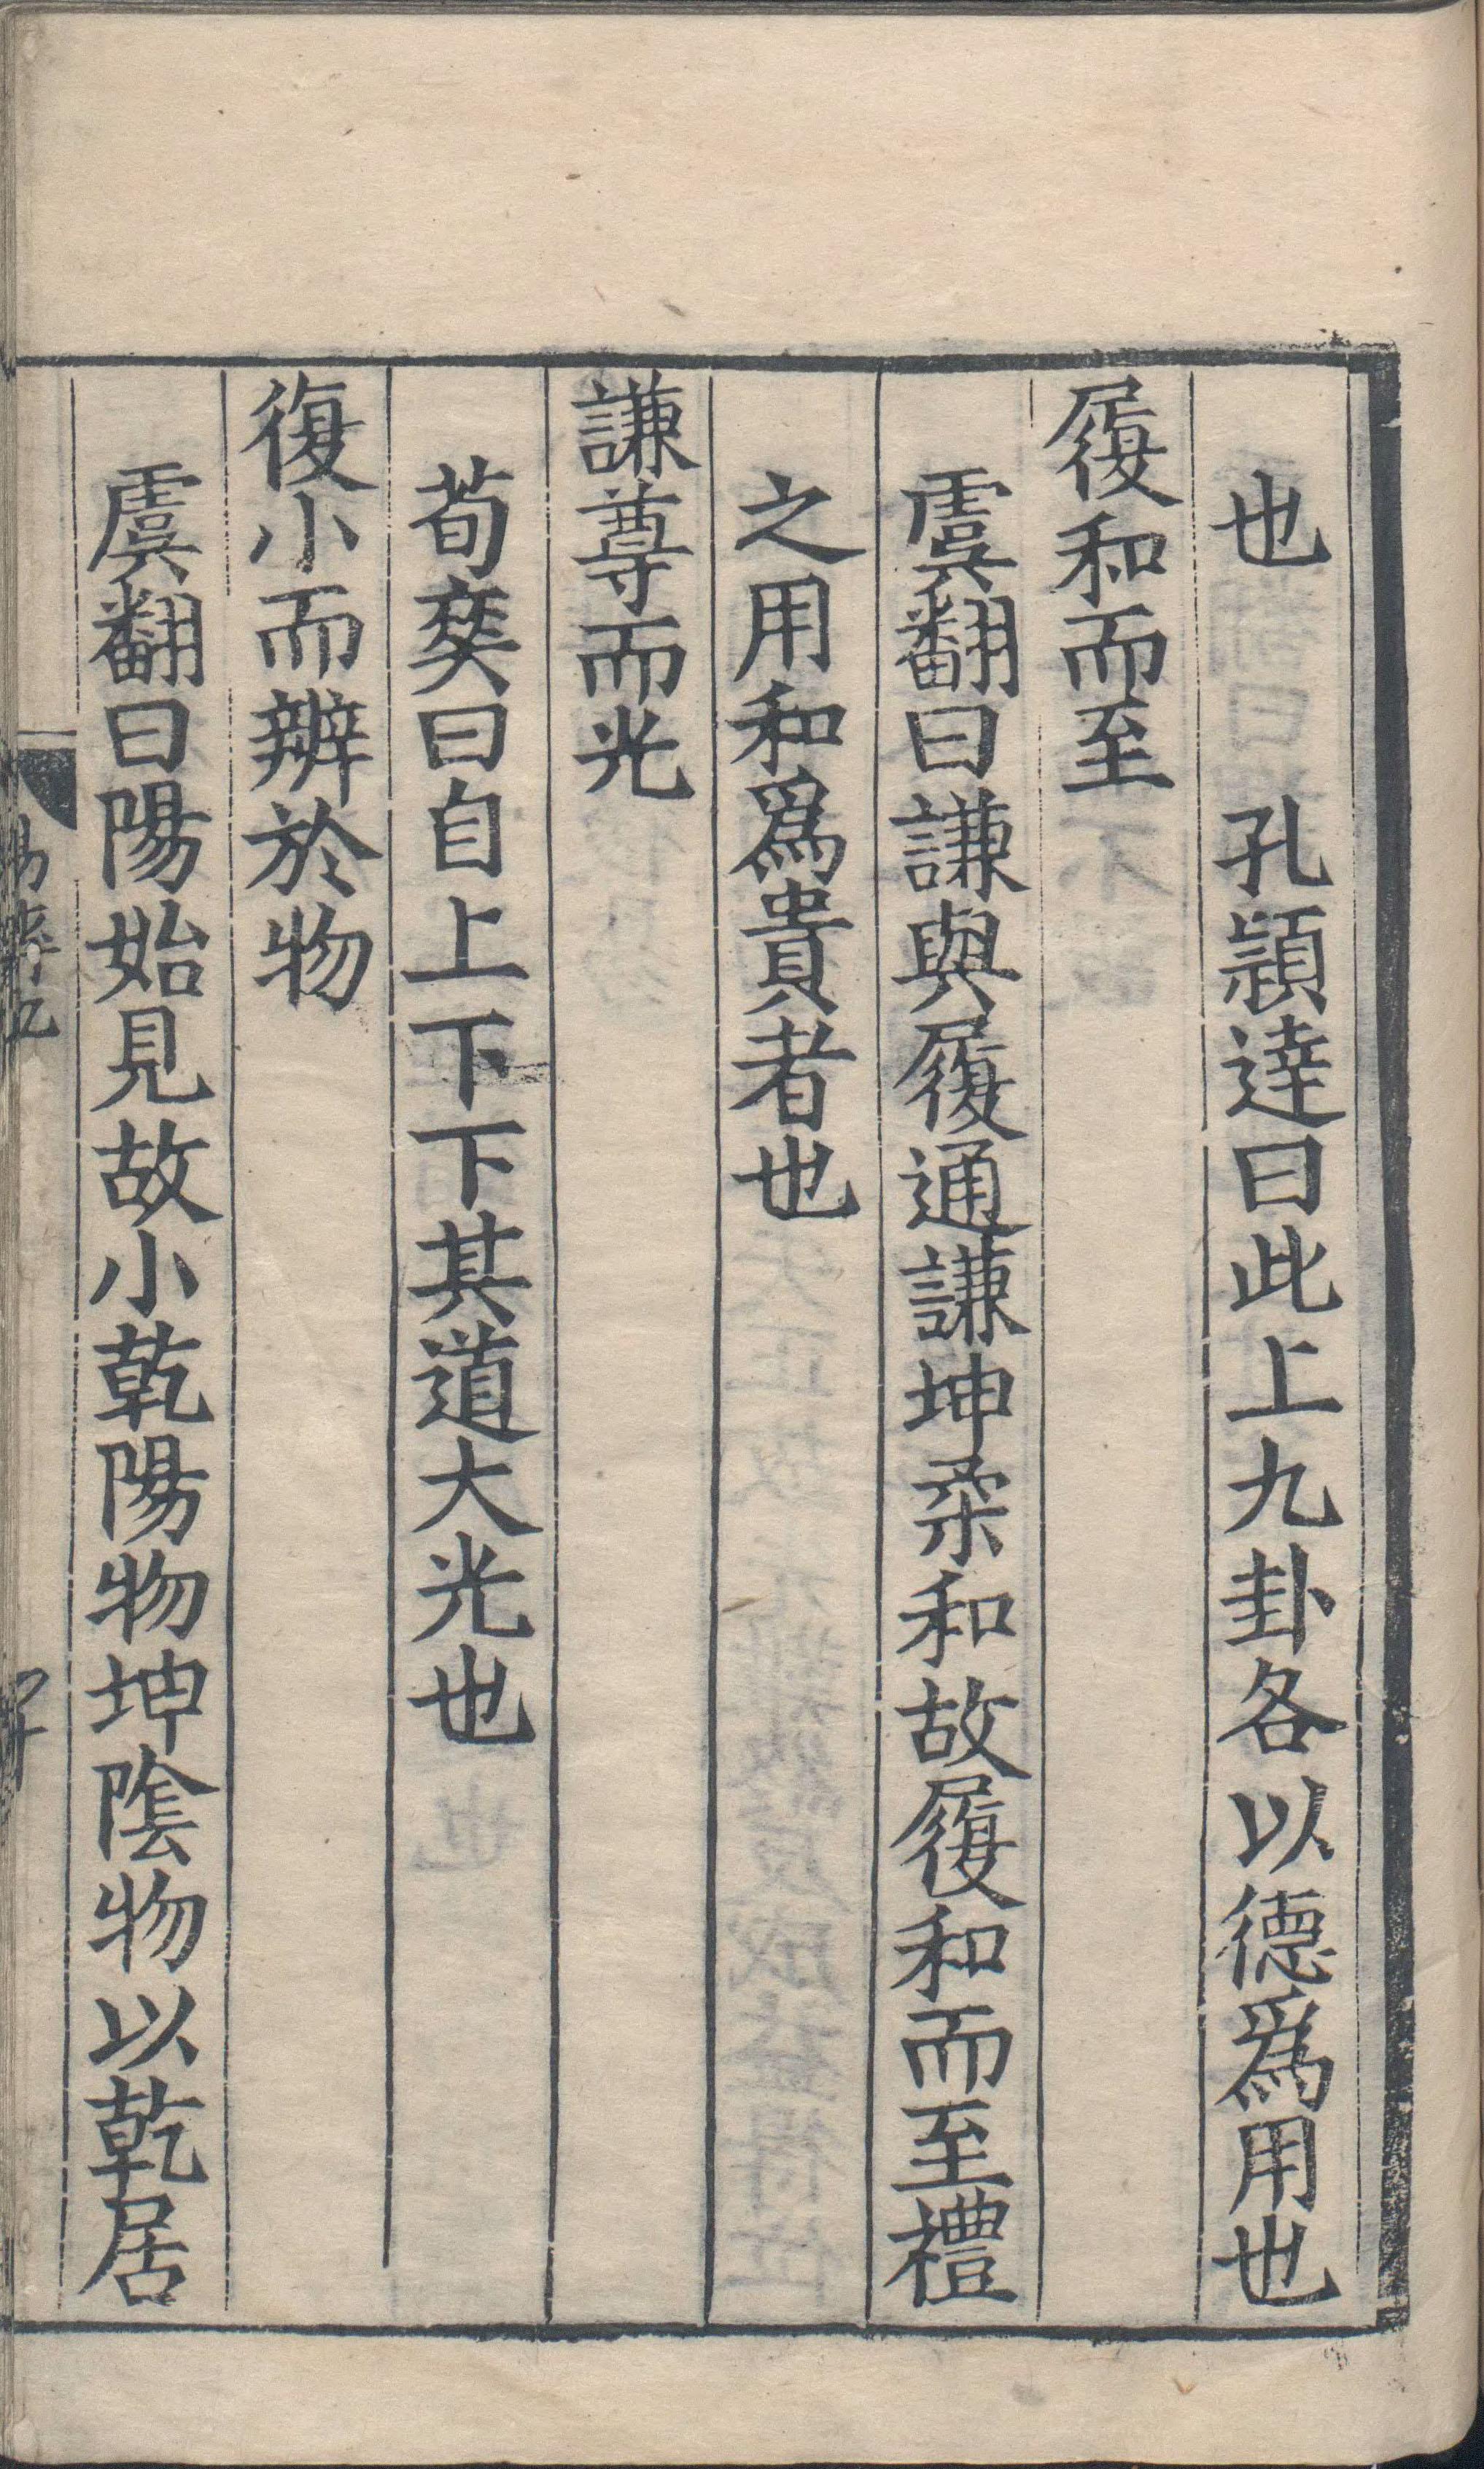 也　　孔頴達曰此上九卦各以德爲用也
履和而至
虞翻曰謙與履通謙坤柔和故履和而至禮
之用和爲貴者也
謙尊而光
荀爽曰自上下下其道大光也
復小而辨於物
虞翻曰陽始見故小乾陽物坤隂物以乾居